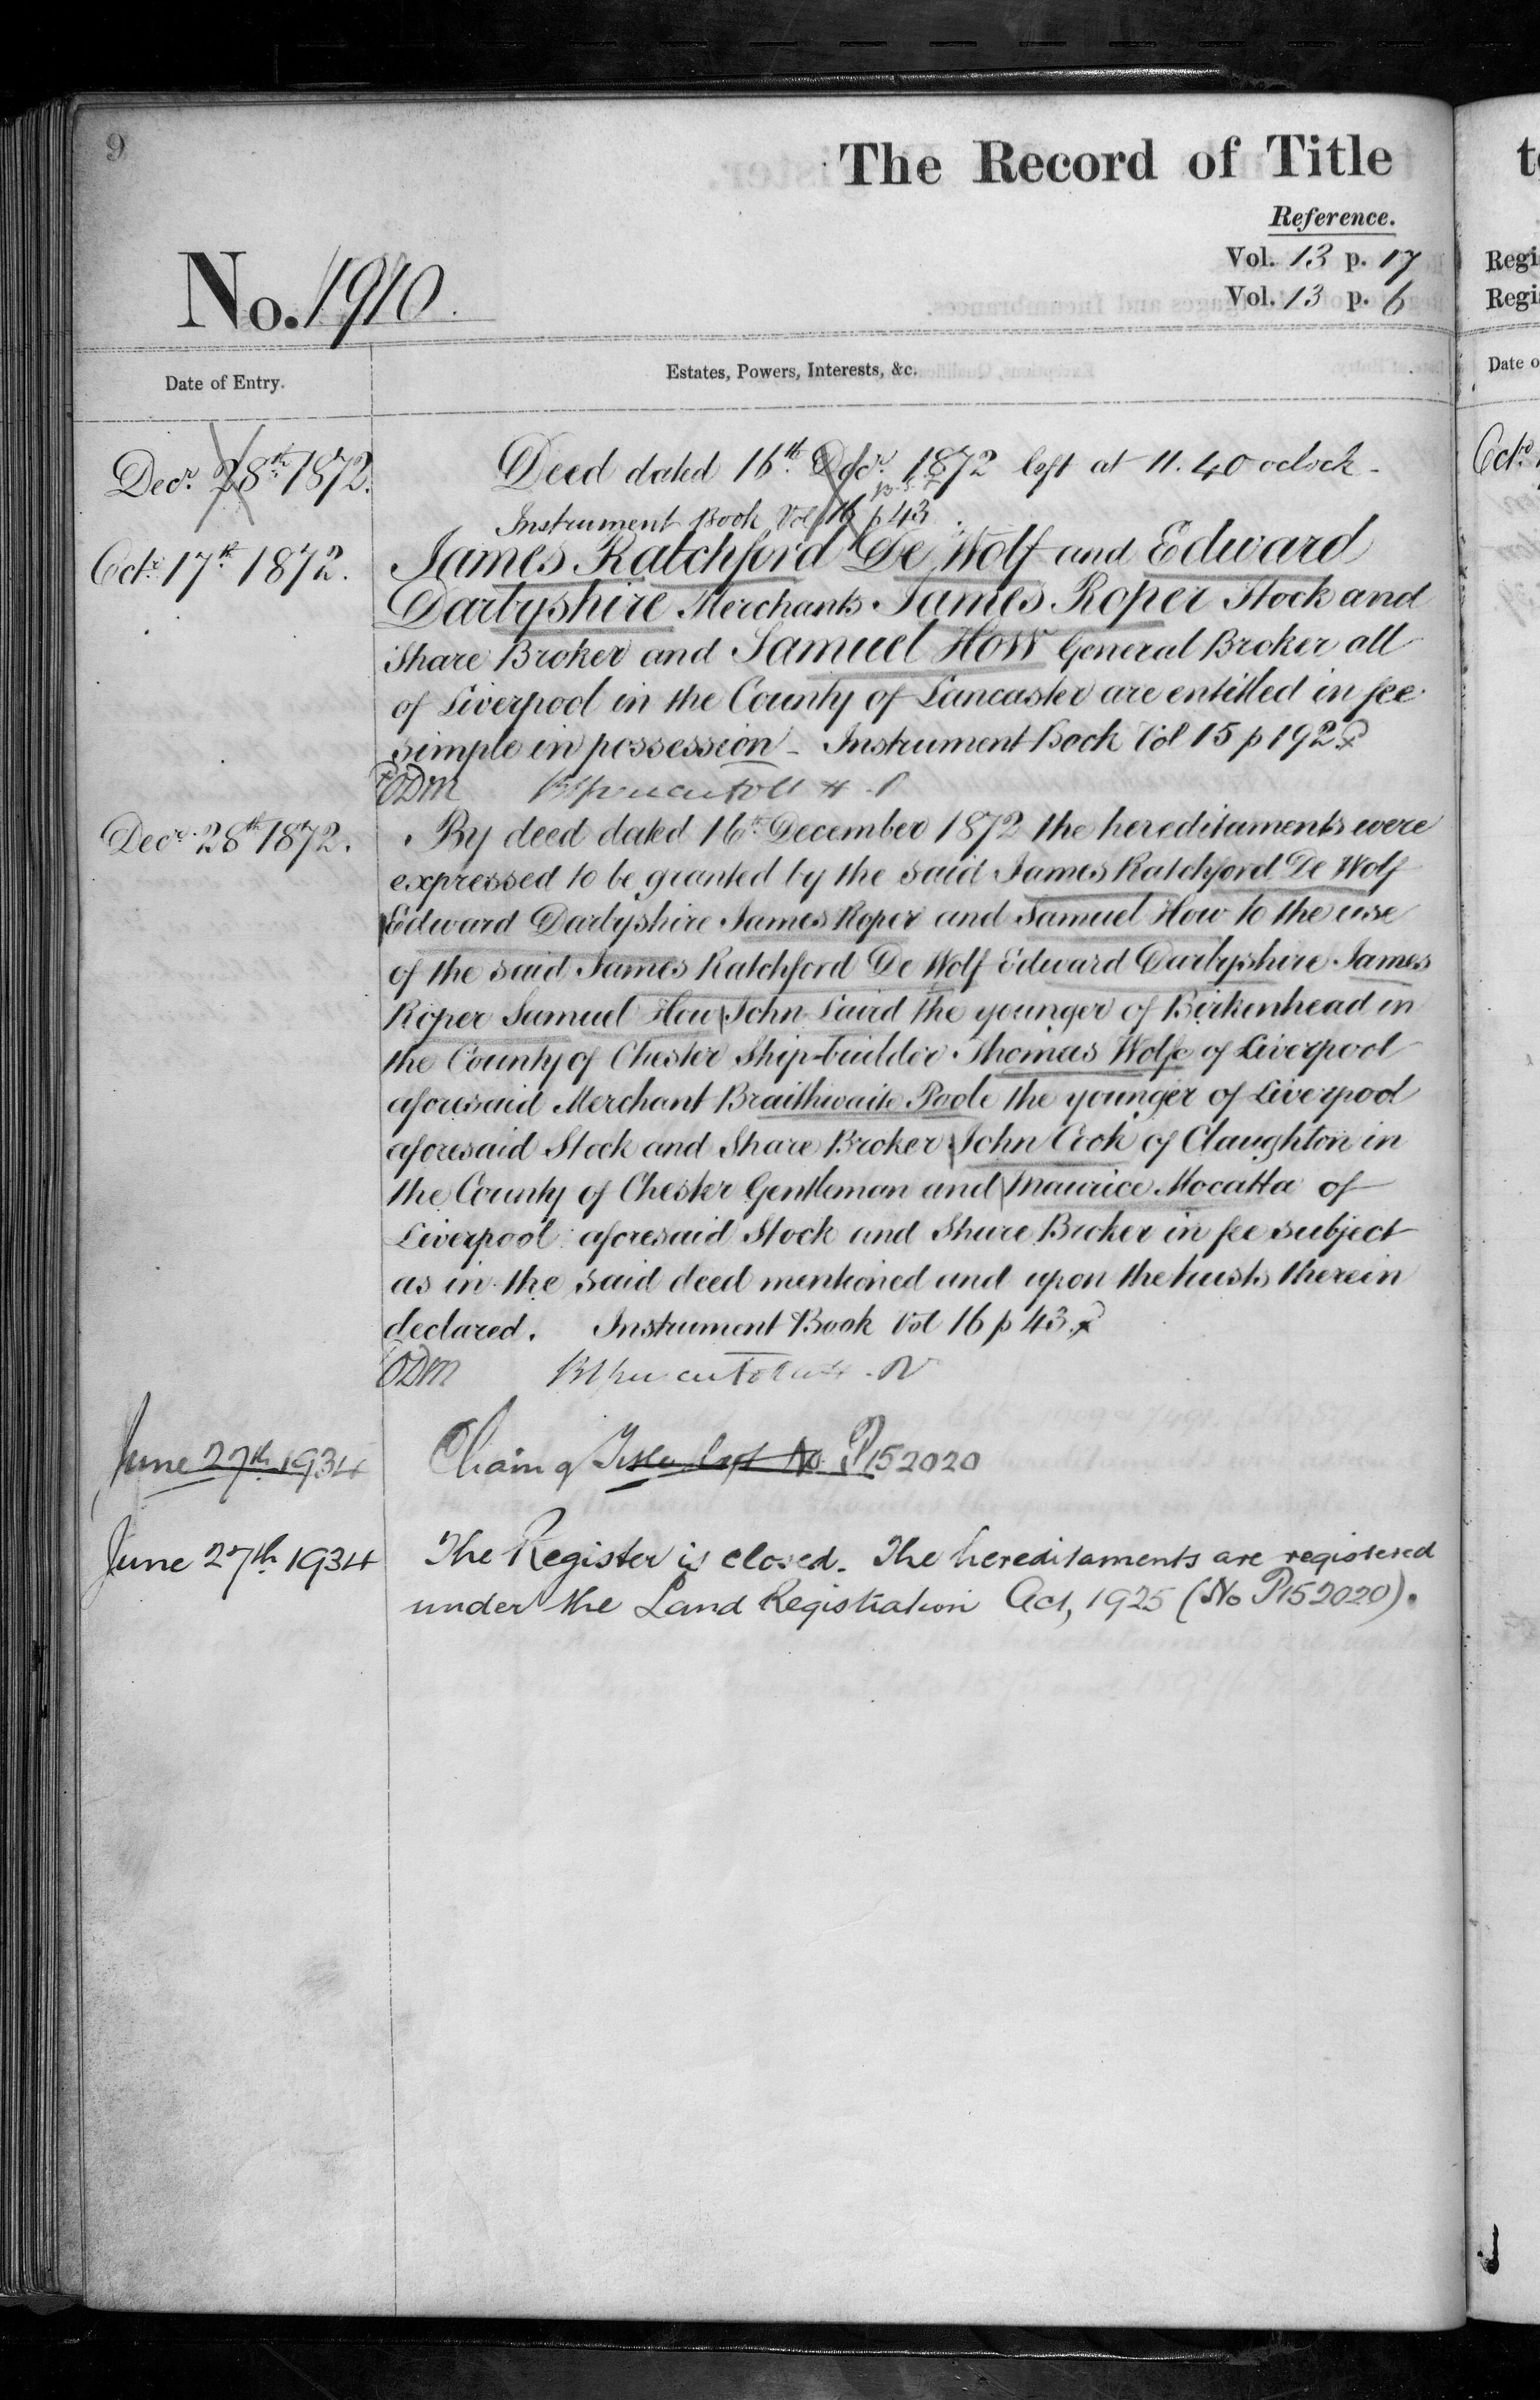 9
The Record of Title
Reference.
Vol. 13 p. 17
Vol. 13 p. 6
No. 1910.
Date of Entry.
Estates, Powers, Interests, &c.
Decr. 28th 1872.
Deed dated 16th. Decr. 1872 left at 11.40 oclock -
Instrument Book Vol 16 p 43
Octr. 17th 1872.
James Ratchford De Wolf and Edward
Darbyshire Merchants James Roper Stock and
Share Broker and Samuel How General Broker all
of Liverpool in the County of Lancaster are entitled in fee
simple in possession - Instrument Book Vol 15 p 192
ODM
Decr. 28th 1872.
By deed dated 16th December 1872 the hereditaments were
expressed to be granted by the said James Ratchford De Wolf
Edward Darbyshire James Roper and Samuel How to the use
of the said James Ratchford De Wolf Edward Darbyshire James
Roper Samuel How John Laird the younger of Birkenhead in
the County of Chester Ship-builder Thomas Wolfe of Liverpool
aforesaid Merchant Braithwaite Poole the younger of Liverpool
aforesaid Stock and Share Broker John Cook of Claughton in
the County of Chester Gentleman and Maurice Mocatta of
Liverpool aforesaid Stock and Share Broker in fee subject
as in the said deed mentioned and upon the trusts therein
declared. Instrument Book Vol 16 p 43.
ODM
June 27th 1934
Chain of No P152020
June 27th 1934
The Register is closed. The hereditaments are registered
under the Land Registration Act, 1925 (No P152020).
t
Regi
Regi
Date o
Octr.